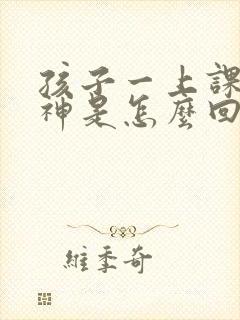 孩子一上課
神是怎麼回
維季奇